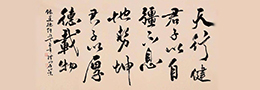 天行健
君子以自
疆不息
地勢坤
君子以厚
德載物